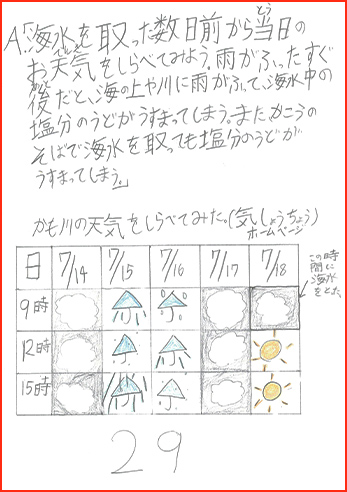 A.「海水を取った数日前から当日の
お天気をしらべてみよう。雨がふったすぐ
後だと、海の上や川に雨がふって、海水中の
塩分のうどがうすまってしまう。またかこうの
そばで海水を取っても塩分のうどが
うすまってしまう。」
かも川の天気をしらべてみた。(気しょうちょう)
ホームページ
日 7/14 7/15 7/16 7/17 7/18
9時
12時
15時
この時
間に
海水
をとった
29